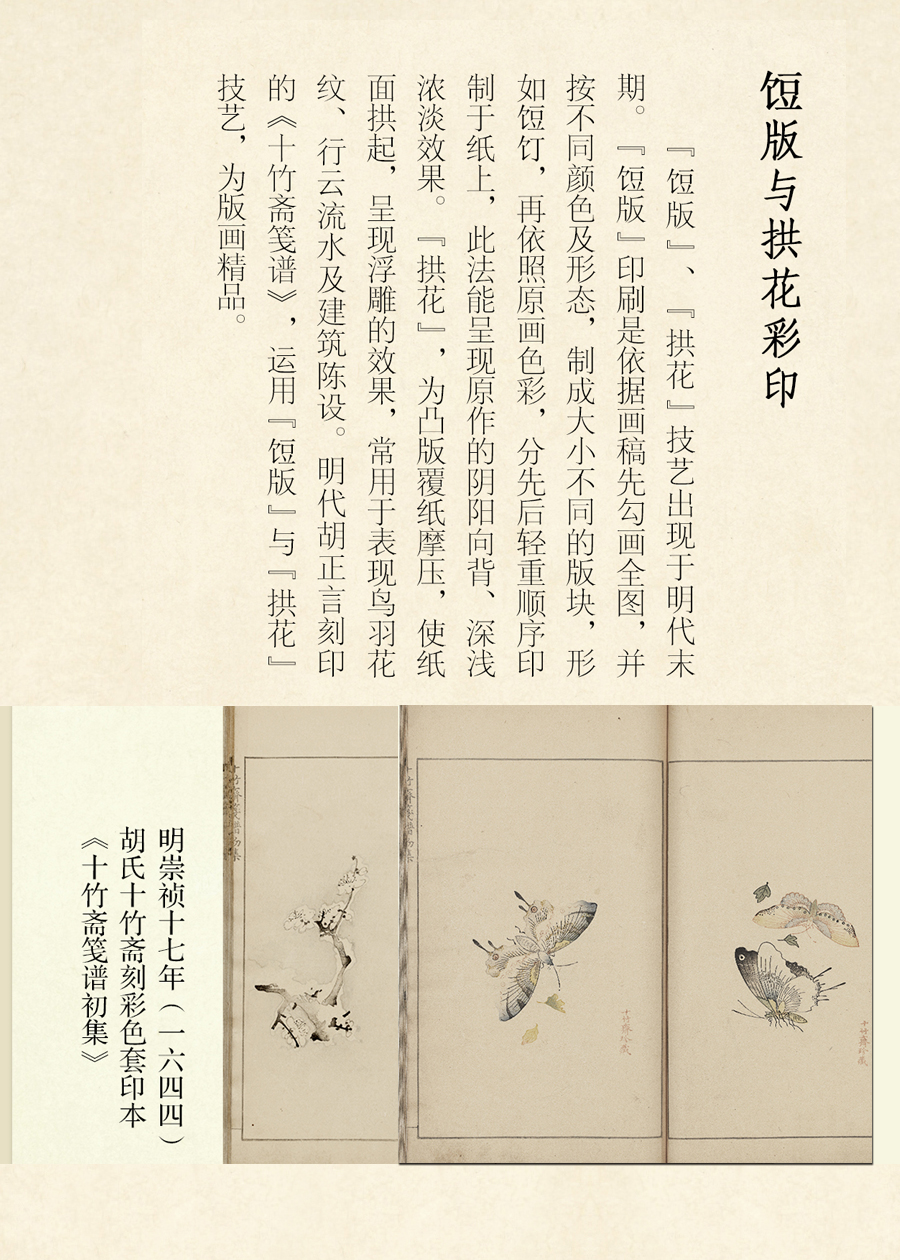 饾版与拱花彩印
『饾版』、『拱花』技艺出现于明代末
期。『饾版』印刷是依据画稿先勾画全图，并
按不同颜色及形态，制成大小不同的版块，形
如饾饤，再依照原画色彩，分先后轻重顺序印
制于纸上，此法能呈现原作的阴阳向背、深浅
浓淡效果。『拱花』，为凸版覆纸摩压，使纸
面拱起，呈现浮雕的效果，常用于表现鸟羽花
纹、行云流水及建筑陈设。明代胡正言刻印
的《十竹斋笺谱》，运用『饾版』与『拱花』
技艺，为版画精品。
十竹齋珍藏
十竹齋珍藏
十竹齋箋譜初集
十竹齋箋譜初集
明崇祯十七年（一六四四）
胡氏十竹斋刻彩色套印本
《十竹斋笺谱初集》